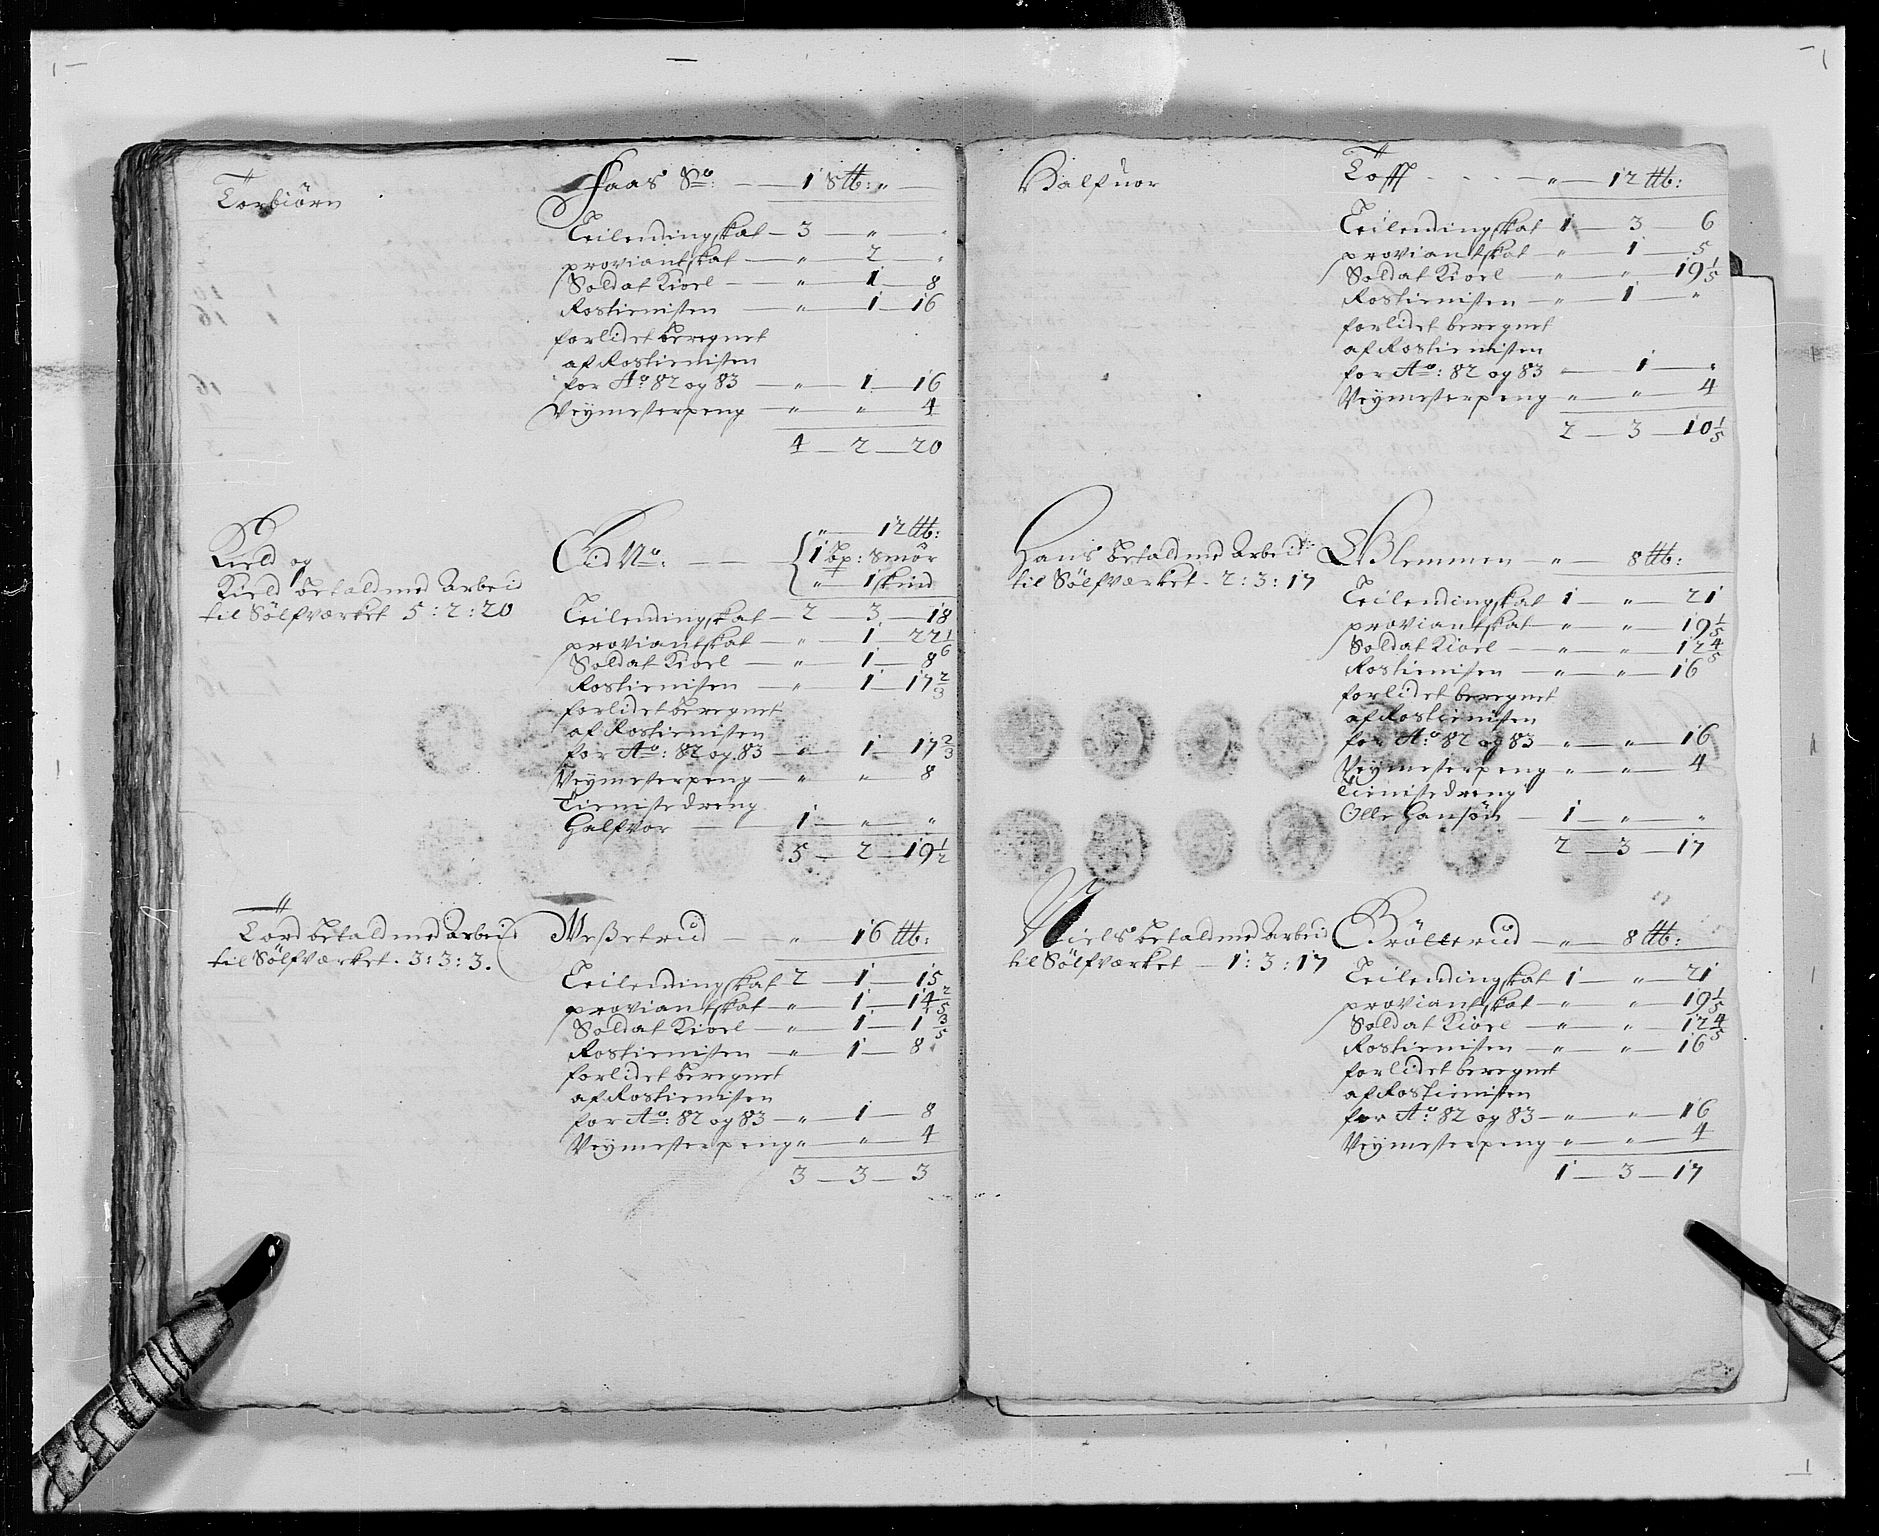 Torbiörn
Faas Sº: — 1 S tb: „ —
Leilendingskat — 3 — „ — „
proviantskat — „ — 2 — „
Soldat Kioel — „ — 1 — 8
Rostienisten — „ — 1 — 16
forlidet beregnet
af Rostienisten
for Aº 82 og 83 — „ — 1 — 16
Veymesterpeng — „ — „ — 4
4 — 2 — 20
Kield og
Kield betald med Arbeid
til Sölfværket 5 : 2 : 20
Eid Nº: — „ — 12 tb:
1 Bp: Smör
„ — 1 skind
Leilendingskat — 2 — 3 — 18
proviantskat — „ — 1 — 22 1/6
Soldat Kioel — „ — 1 — 8
Rostienisten — „ — 1 — 17 2/3
forlidet beregnet
af Rostienisten
for Aº: 82 og 83 — „ — 1 — 17 2/3
Veymesterpeng — „ — „ — 8
Tienistedreng
Halfvor — 1 — „ — „
5 — 2 — 19 1/2
Tord betald med Arbeid
til Sölfværket . 3 : 3 : 3 .
Weßetrud — „ — 16 tb:
Leilendingskat 2 — 1 — 15
proviantskat — „ — 1 — 14 2/5
Soldat Kioel — „ — 1 — 1 3/5
Rostienisten — „ — 1 — 8
forlidet beregnet
af Rostienisten
for Aº: 82 og 83 — „ — 1 — 8
Veymesterpeng „ — „ — 4
3 — 3 — 3
Halfuor
Toff . . . — „ — 12 tb:
Leilendingskat 1 — 3 — 6
proviantskat — „ — 1 — 5
Soldat Kioel — „ — „ — 19 1/5
Rostienisten — „ — 1 — „
forlidet beregnet
af Rostienisten
for Aº: 82 og 83 „ — 1 — „
Veymesterpeng „ — „ — 4
2 — 3 — 10 1/5
Hans betald med Arbeid
til Sölfværket . 2 : 3 : 17
Blemmen — „ — 8 tb:
Leilendingskat 1 — „ — 21
proviantskat — „ — „ — 19 1/5
Soldat Kioel — „ — „ — 12 4/5
Rostienisten — „ — „ — 16
forlidet beregnet
af Rostienisten
for Aº: 82 og 83 — „ — „ — 16
Veymesterpeng — „ — „ — 4
Tienistedreng
Olle Hansön — 1 — „ — „
2 — 3 — 17
Niels betald med Arbeid
til Sölfværket — 1 : 3 : 17
Bröllerud — „ — 8 tb:
Leilendingskat 1 — „ — 21
proviantskat — „ — „ — 19 1/5
Soldat Kioel — „ — „ — 12 4/5
Rostienisten — „ — „ — 16
forlidet beregnet
af Rostienisten
for Aº: 82 og 83 — „ — „ — 16
Veymesterpeng — „ — „ — 4
1 — 3 — 17